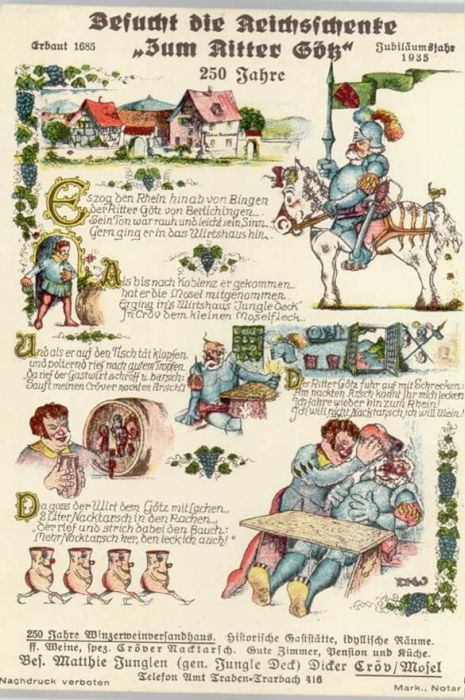 Besucht die Reichsschenke
„Zum Ritter Götz“
Erbaut 1685
Jubiläumsjahr
1935
250 Jahre
Es zog den Rhein hinab von Bingen
der Ritter Götz von Berlichingen...
Sein Ton war rauh und leicht sein Sinn.
Gern ging er in das Wirtshaus hin...
Als bis nach Koblenz er gekommen
hat er die Mosel mitgenommen
Er ging in's Wirtshaus "Jungle Deck"
in Cröv dem kleinen Moselfleck...
Und als er auf den Tisch tät klopfen
und polternd rief nach gutem Tropfen
Da rief der Gastwirt schroff u. barsch:
Sauft meinen Cröver nackten Arsch!
Der Ritter Götz fuhr auf mit Schrecken:
Am nackten Arsch könnt Ihr mich lecken
Ich fahre wieder hin zum Rhein!
Ich will nicht Nacktarsch, ich will Wein!
Da goss der Wirt dem Götz mit Lachen
2 Liter Nacktarsch in den Rachen...
der rief und strich dabei den Bauch:
Mehr Nacktarsch her, den leck ich auch!"
250 Jahre Winzerweinversandhaus. Historische Gaststätte, idyllische Räume.
ff. Weine, spez. Cröver Nacktarsch. Gute Zimmer, Pension und Küche.
Bes. Matthie Junglen (gen. Jungle Deck) Dicker Cröv/Mosel
Telefon Amt Traben-Trarbach 416
Nachdruck verboten
Mark., Notar